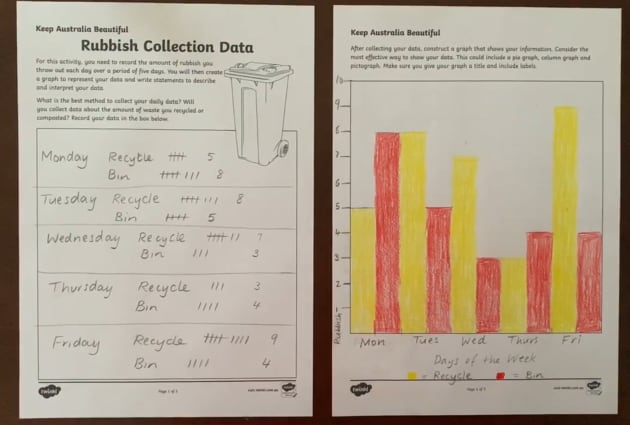 Keep Australia Beautiful
Rubbish Collection Data
For this activity, you need to record the amount of rubbish you
throw out each day over a period of five days. You will then create
a graph to represent your data and write statements to describe
and interpret your data.
What is the best method to collect your daily data? Will
you collect data about the amount of waste you recycled or
composted? Record your data in the box below.
Monday Recycle 5
Bin 8
Tuesday Recycle 8
Bin 5
Wednesday Recycle 7
Bin 3
Thursday Recycle 3
Bin 4
Friday Recycle 9
Bin 4
twinkl
Page 1 of 3
visit twinkl.com.au
Keep Australia Beautiful
After collecting your data, construct a graph that shows your information. Consider the
most effective way to show your data. This could include a pie graph, column graph and
pictograph. Make sure you give your graph a title and include labels.
10
9
8
7
6
5
4
3
2
1
Rubbish
Mon Tues Wed Thurs Fri
Days of the Week
= Recycle = Bin
twinkl
visit twinkl.com.au